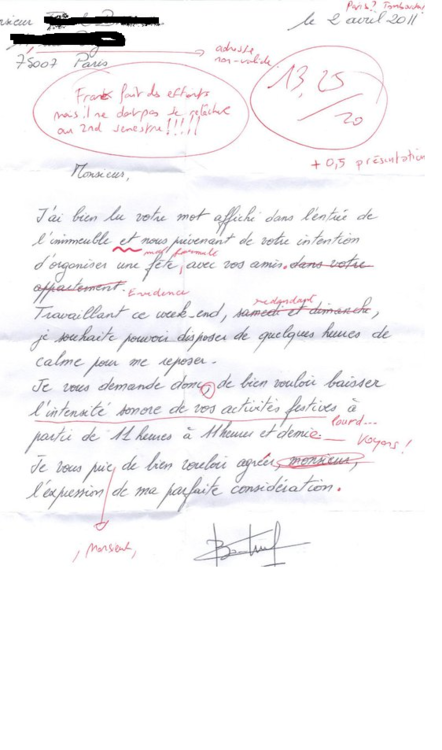 Paris? Tombouctou
Monsieur
le 2 avril 2011
adresse
non-valide
75007 Paris
13,25
/20
fait des efforts
mais il ne doit pas se relâcher
au 2nd semestre!!!!!
+0,5 présentation
Monsieur,
J'ai bien lu votre mot affiché dans l'entrée de
l'immeuble et nous prévenant de votre intention
d'organiser une fête, avec vos amis dans votre
appartement. Evidence
redondant
Travaillant ce week-end, samedi et dimanche,
je souhaite pouvoir disposer de quelques heures de
calme pour me reposer.
Je vous demande donc, de bien vouloir baisser
l'intensité sonore de vos activités festives à
lourd...
parti de 11 heures à 11 heures et demie. Voyons!
Je vous prie de bien vouloir agréer, monsieur,
l'expression de ma parfaite considération.
, Monsieur,